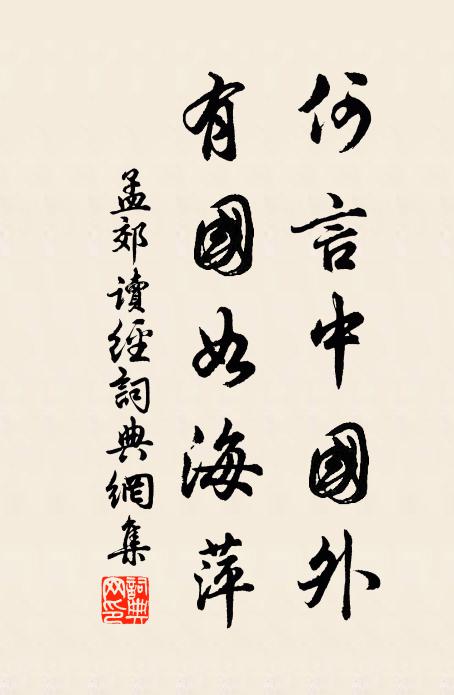 何言中國外
有國如海萍
孟郊讀經詞典網集
詞典網印